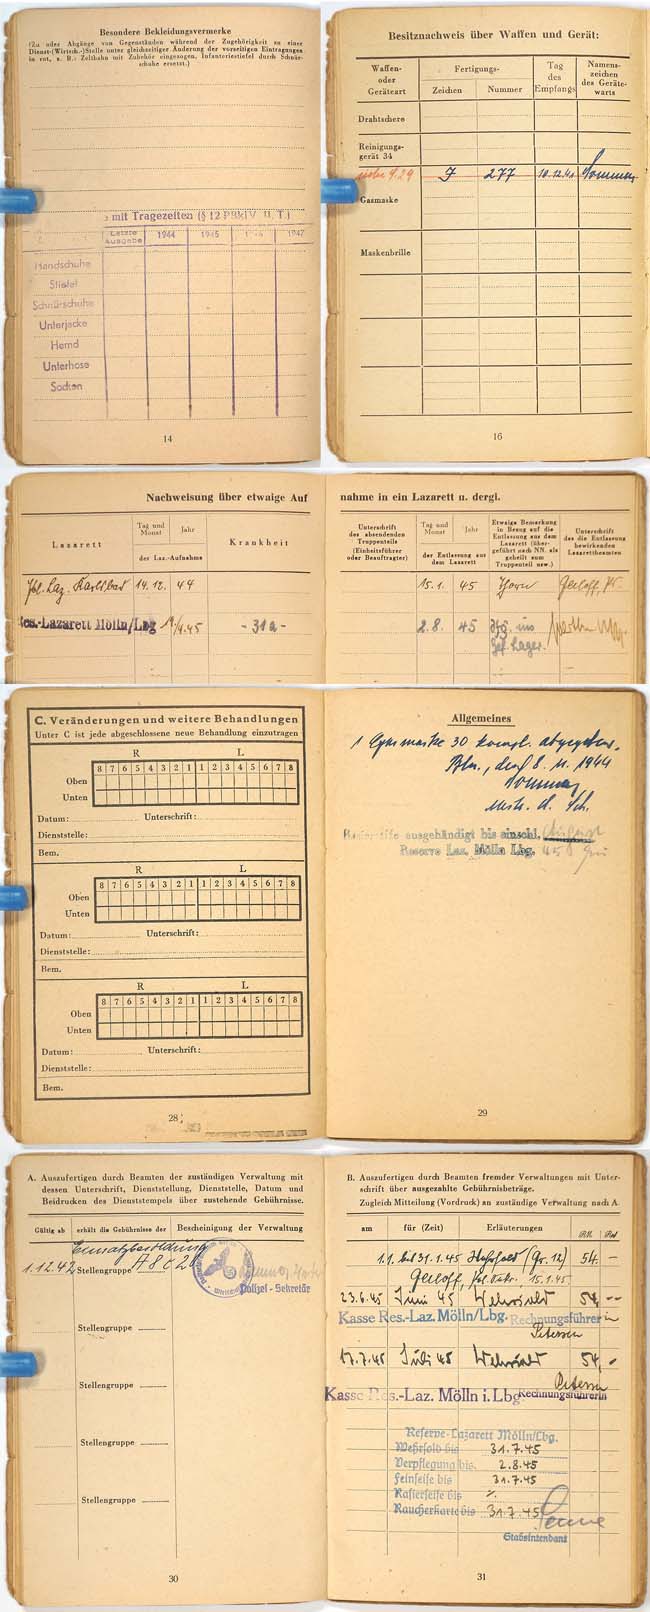 Besondere Bekleidungsvermerke
(Zu oder Abgänge von Gegenständen während der Zugehörigkeit zu einer
Dienst-(Wirtsch.-)Stelle unter gleichzeitiger Änderung der vorseitigen Eintragungen
in rot, z. B.: Zeltbahn mit Zubehör eingezogen, Infanteriestiefel durch Schnür-
schuhe ersetzt.)
mit Tragezeiten (§ 12 PBklV. II. T.)
Letzte Ausgabe 1944 1945 1946 1947
Handschuhe
Stiefel
Schnürschuhe
Unterjacke
Hemd
Unterhose
Socken
14
Besitznachweis über Waffen und Gerät:
Waffen- oder Geräteart Fertigungs- Zeichen Nummer Tag des Empfangs Namens- zeichen des Geräte- warts
Drahtschere
Reinigungs-
gerät 34
J 277 10.12.41
Gasmaske
Maskenbrille
16
Nachweisung über etwaige Aufnahme in ein Lazarett u. dergl.
Lazarett Tag und Monat Jahr der Laz.-Aufnahme Krankheit
Unterschrift des absendenden Truppenteils (Einheitsführer oder Beauftragter) Tag und Monat Jahr der Entlassung aus dem Lazarett Etwaige Bemerkung in Bezug auf die Entlassung aus dem Lazarett (über- geführt nach NN. als geheilt zum Truppenteil usw.) Unterschrift des die Entlassung bewirkenden Lazarettbeamten
Pol. Laz. Karlsbad 14.12. 44 15.1. 45 Gerloff,
Res.-Lazarett Mölln/Lbg 45 -31a- 2.8. 45 ins
Lager.
C. Veränderungen und weitere Behandlungen
Unter C ist jede abgeschlossene neue Behandlung einzutragen
R L
8 7 6 5 4 3 2 1 1 2 3 4 5 6 7 8
Oben
Unten
Datum: Unterschrift:
Dienststelle:
Bem.
R L
8 7 6 5 4 3 2 1 1 2 3 4 5 6 7 8
Oben
Unten
Datum: Unterschrift:
Dienststelle:
Bem.
R L
8 7 6 5 4 3 2 1 1 2 3 4 5 6 7 8
Oben
Unten
Datum: Unterschrift:
Dienststelle:
Bem.
28
Allgemeines
1 Gasmaske 30 kompl. abgegeben.
Bln., den 8. 11. 1944
ausgehändigt bis einschl. August
Reserve Laz. Mölln Lbg. 45
29
A. Auszufertigen durch Beamten der zuständigen Verwaltung mit
dessen Unterschrift, Dienststellung, Dienststelle, Datum und
Beidrucken des Dienststempels über zustehende Gebührnisse.
Gültig ab erhält die Gebührnisse der Bescheinigung der Verwaltung
Einsatzbesoldung
1.12.42 Stellengruppe A 8 c 2
Polizei - Sekretär
Stellengruppe
Stellengruppe
Stellengruppe
Stellengruppe
30
B. Auszufertigen durch Beamten fremder Verwaltungen mit Unter-
schrift über ausgezahlte Gebührnisbeträge.
Zugleich Mitteilung (Vordruck) an zuständige Verwaltung nach A
am für (Zeit) Erläuterungen RM Rpf
1.1. bis 31.1.45 Wehrsold (Gr. 12) 54.-
Gerloff, 15.1.45
23.6.45 Juni 45 Wehrsold 54,--
Kasse Res.-Laz. Mölln/Lbg. Rechnungsführerin
Petersen
17.7.45 Juli 45 Wehrsold 54,-
Petersen
Kasse Res.-Laz. Mölln i.Lbg. Rechnungsführerin
Reserve-Lazarett Mölln/Lbg.
Wehrsold bis 31.7.45
Verpflegung bis 2.8.45
Feinseife bis 31.7.45
Rasierseife bis %.
Raucherkarte bis 31.7.45
Stabsintendant
31